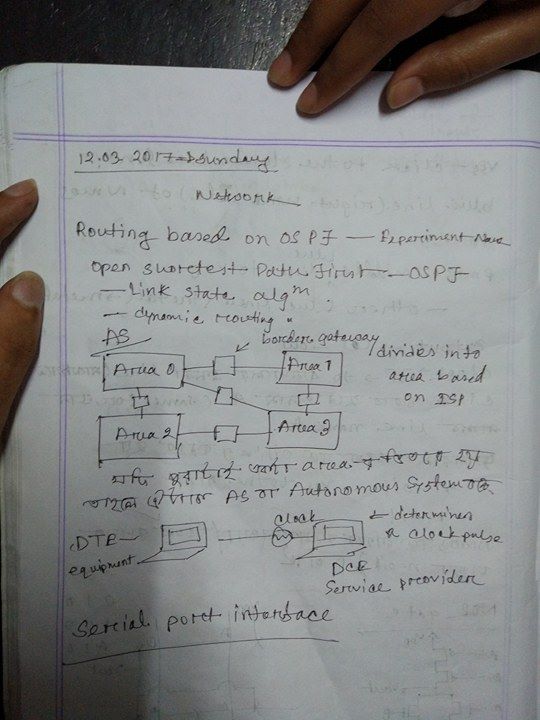 12.03.2017-Sunday
Network
Routing based on OSPF — Experiment Name
Open shoretest Path First — OSPF
— Link state algm.
— dynamic routing "
AS
border gateway
Area 0
Area 1
Area 2
Area 3
divides into
area based
on ISP
যদি পুরাটাই একটা area হয়
তাহলে AS or Autonomous System
DTE
equipment
clock
← determines
clock pulse
DCE
Service provider
Serial port interface